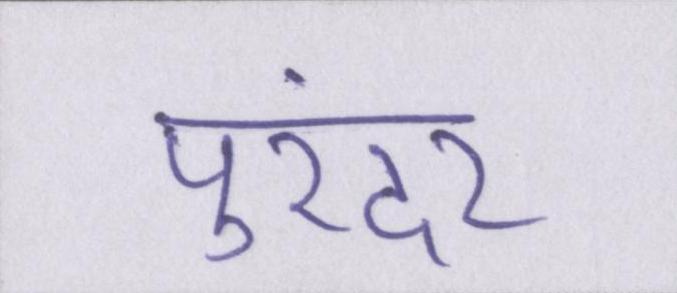 पुरंदर